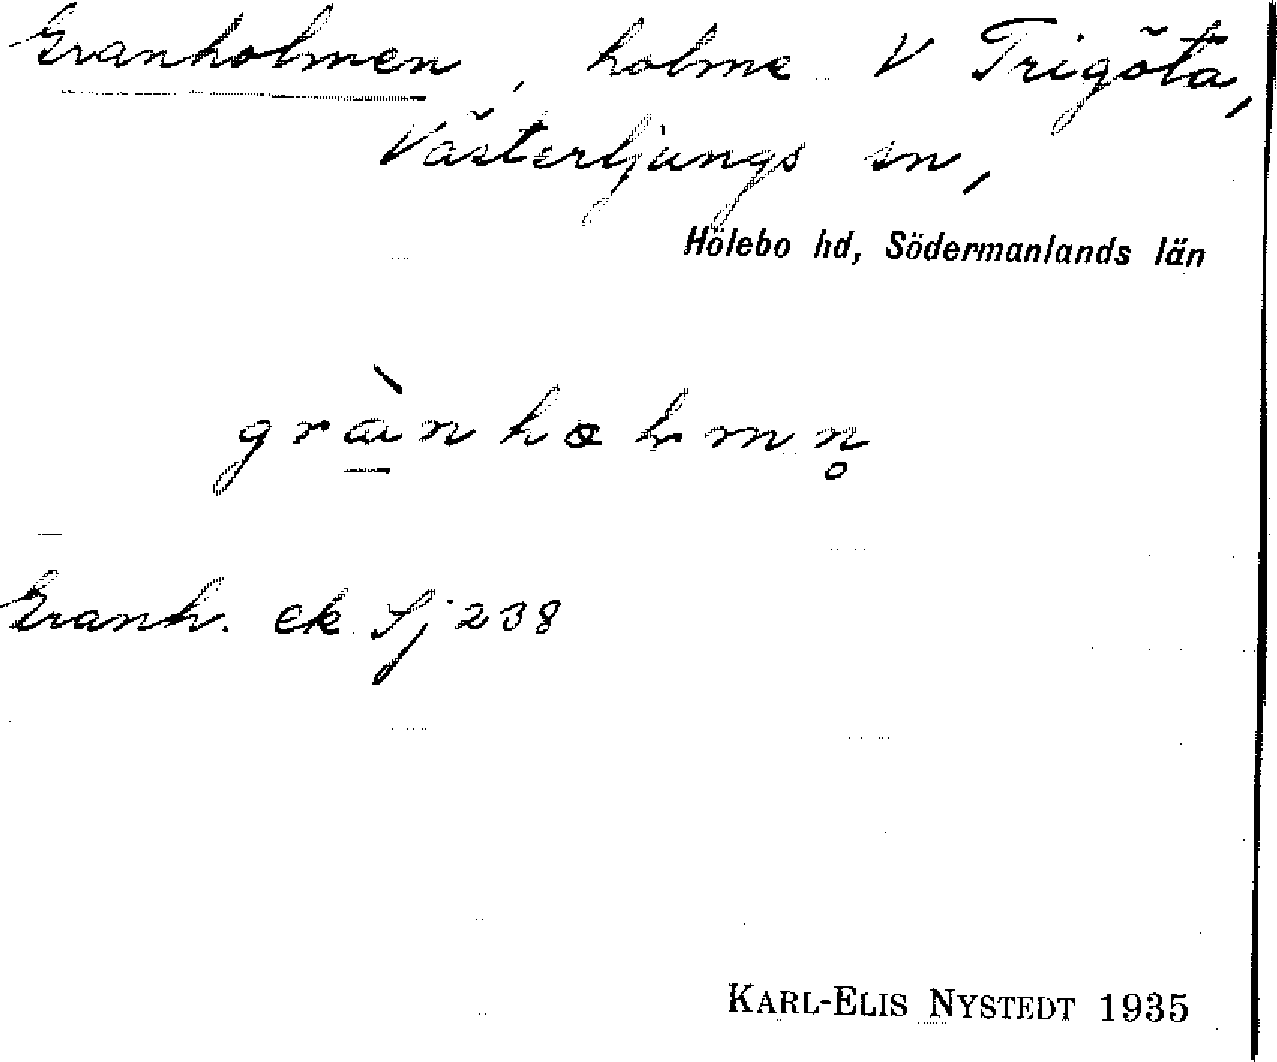 Granholmen, holme V Trigöta,
Västerljungs sn,
Hölebo hd, Södermanlands län
grànhɷlmn̥
Granh. ek Sj 238
KARL-ELIS NYSTEDT 1935